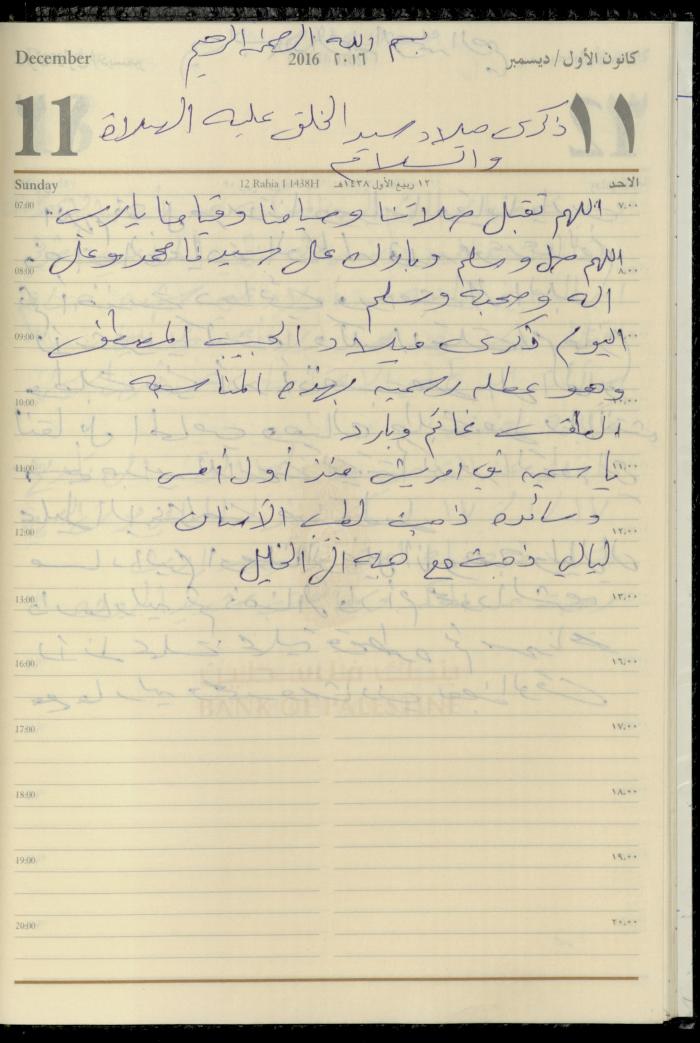 بسم الله الرحمن الرحيم
December 2016 ٢٠١٦ كانون الأول / ديسمبر
11 ذكرى ميلاد سيد الخلق عليه الصلاة ١١
والسلام
Sunday 12 Rabia I 1438H ١٢ ربيع الأول ١٤٣٨هـ الاحد
07:00 اللهم تقبل صلاتنا وصيامنا وقيامنا يا رب ٧:٠٠
اللهم صل وسلم وبارك على سيدنا محمد وعلى
08:00 ٨:٠٠
اله وصحبه وسلم
09:00 اليوم ذكرى ميلاد الحبيب المصطفى
وهو عطله رسميه بهذه المناسبه
10:00 ١٠:٠٠
الطقس غائم وبارد
11:00 ياسميه في امريش منذ أول أمس ١١:٠٠
وسائده ذهبت لطب الأسنان
12:00 ١٢:٠٠
ليالي ذهبت مع هبه الى الخليل
13:00 ١٣:٠٠
16:00 ١٦:٠٠
BANK OF PALESTINE
17:00 ١٧:٠٠
18:00 ١٨:٠٠
19:00 ١٩:٠٠
20:00 ٢٠:٠٠